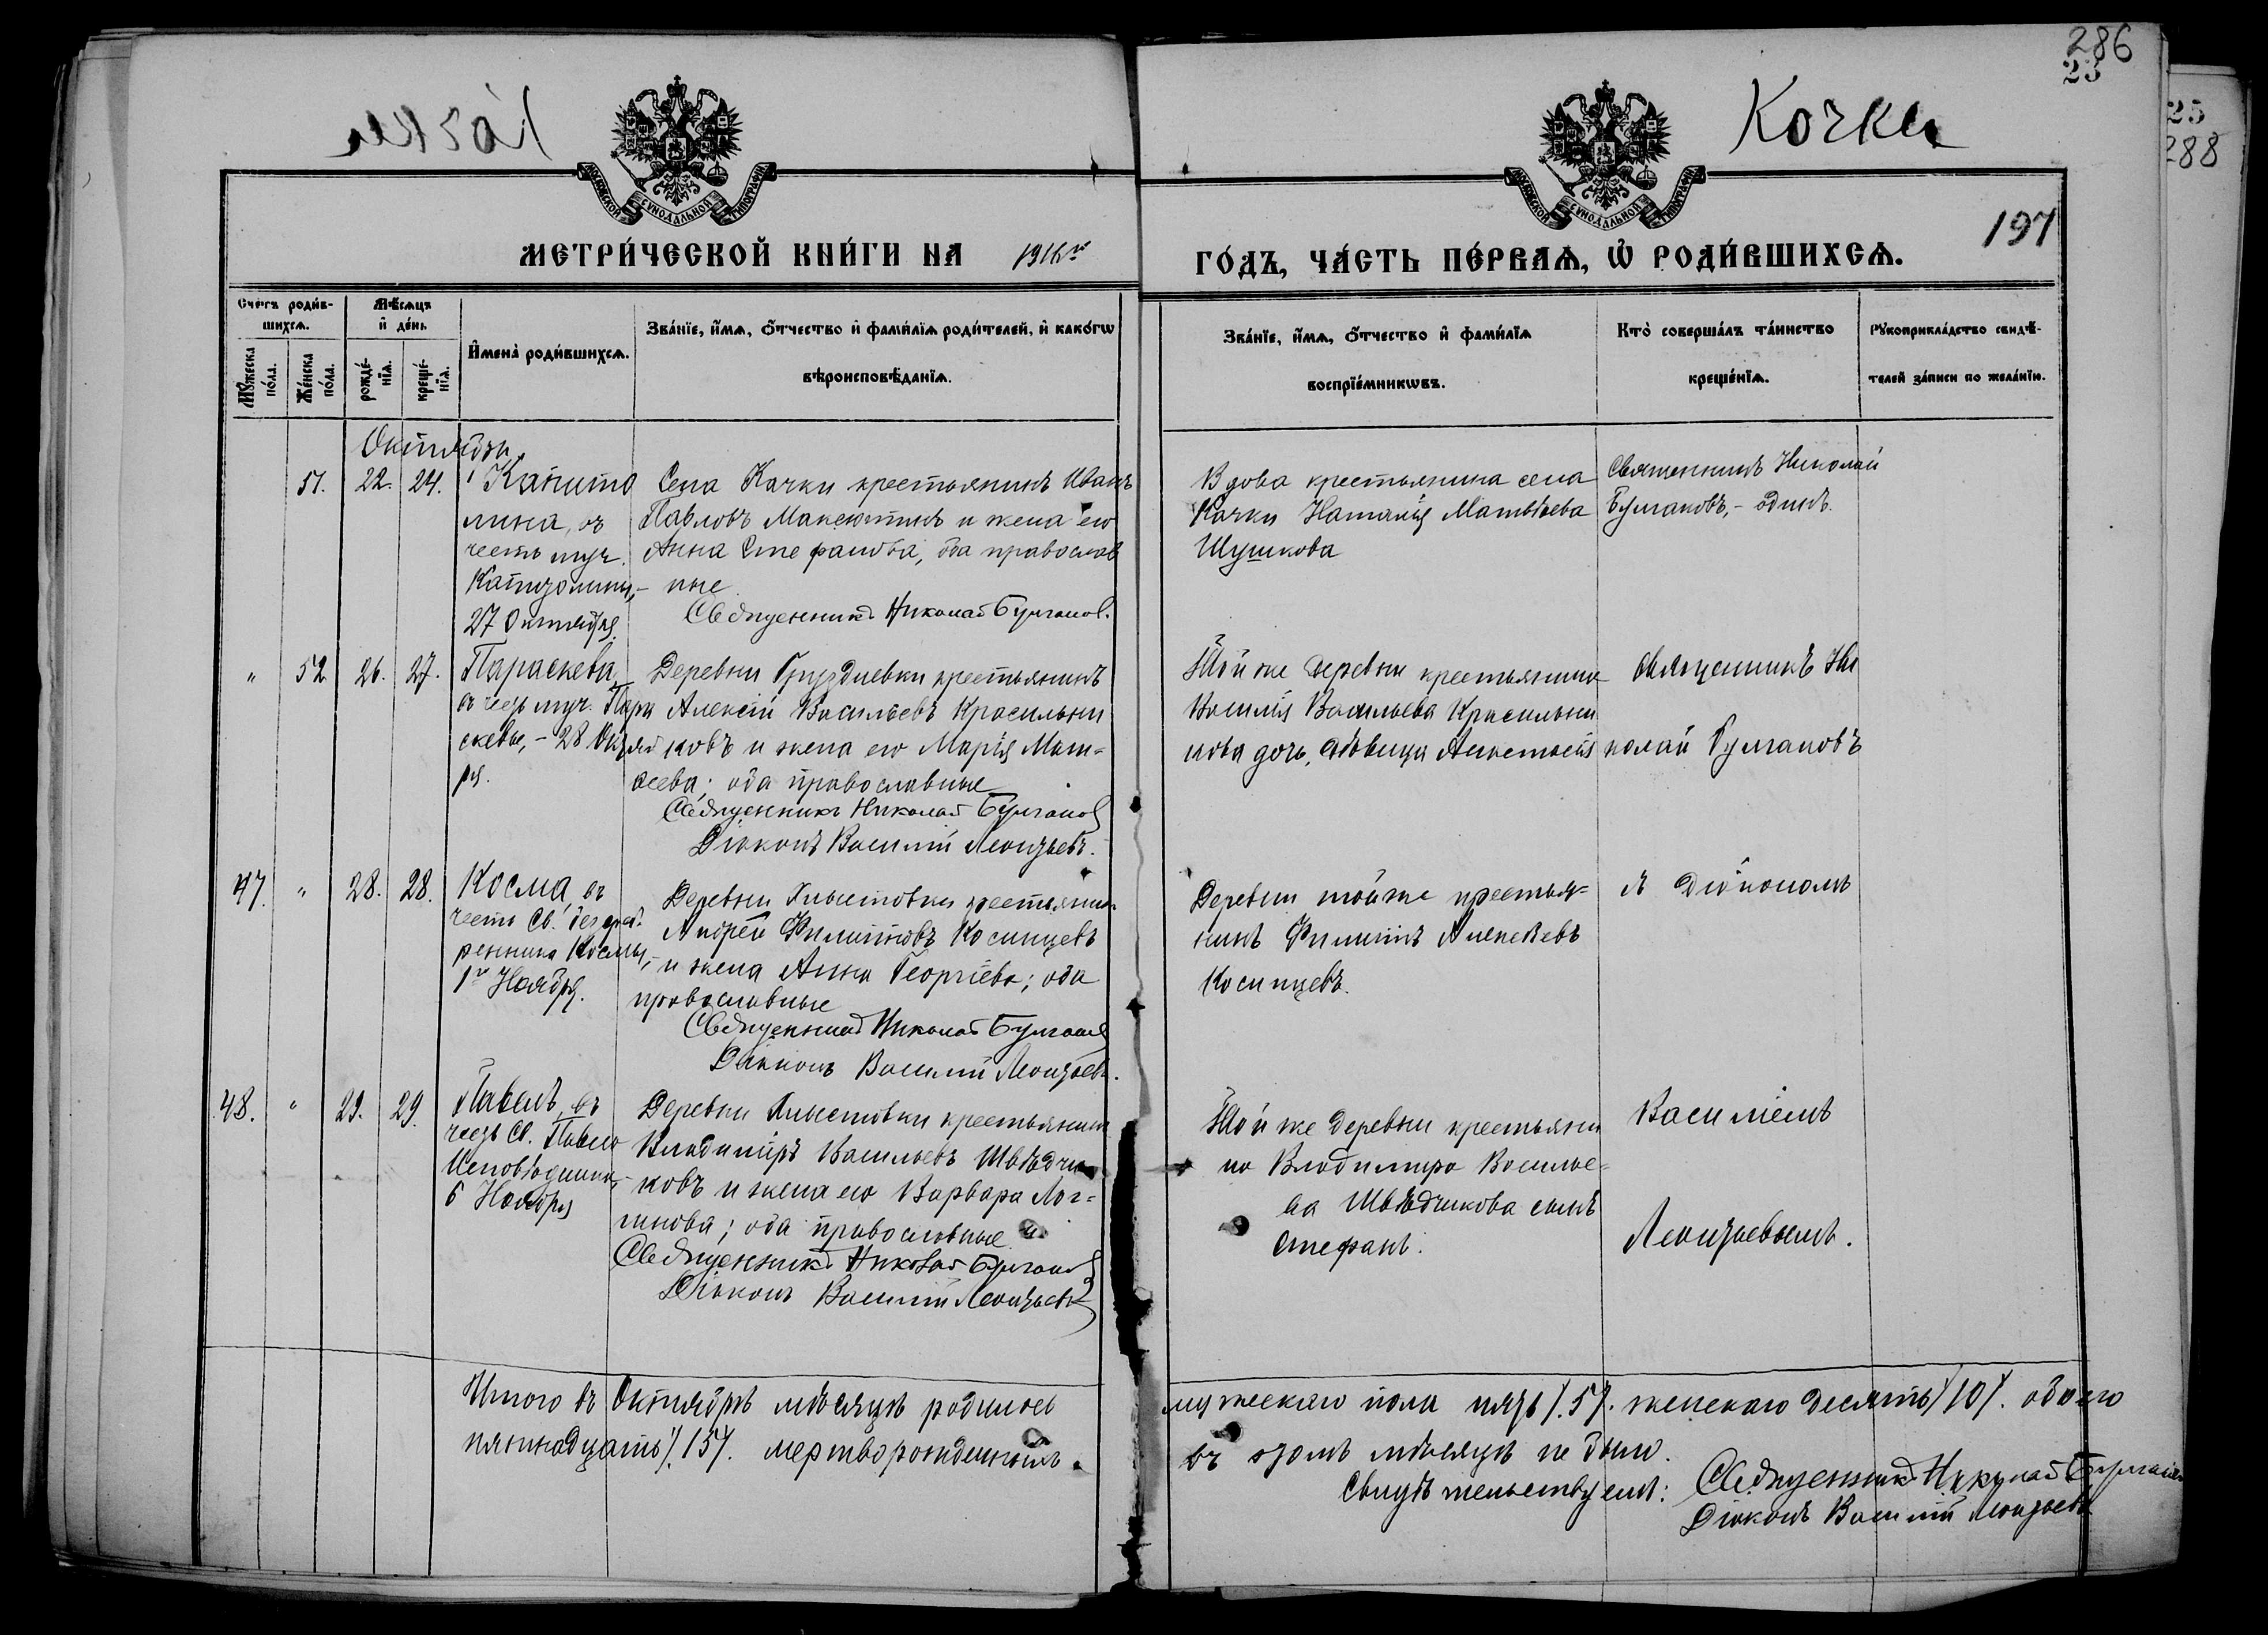 286
23
25
288
Кочки
197
МОСКОВСКОЙ СѴНОДАЛЬНОЙ ТИПОГРАФІИ
МОСКОВСКОЙ СѴНОДАЛЬНОЙ ТИПОГРАФІИ
МЕТРИ́ЧЕСКОЙ КНИ́ГИ НА 1916 г.
ГО́ДЪ, ЧА́СТЬ ПЕ́РВАѦ, Ѡ҆ РОДИ́ВШИХСѦ.
Сче́тъ роди́в-
шихсѧ.
Мꙋ́жеска по́ла.
Же́нска по́ла.
Мѣ́сѧцъ
и҆ де́нь
рожде́-
нїѧ.
креще́-
нїѧ.
И҆мена̀ роди́вшихсѧ.
Зва́нїе, и҆́мѧ, ѻ҆́тчество и҆ фами́лїѧ роди́телей, и҆ како́гѡ
вѣроисповѣ́данїѧ.
Зва́нїе, и҆́мѧ, ѻ҆́тчество и҆ фами́лїѧ
воспрїе́мникѡвъ.
Кто̀ соверша́лъ та́инство
креще́нїѧ.
Рꙋкоприкла́дство свидѣ́-
телей за́писи по жела́нїю.
Октябрь
51. 22. 24. Капито
лина, въ
честь муч.
Капитолины, –
27 Октября.
Села Кочки крестьянинъ Иванъ
Павловъ Максюткинъ и жена его
Анна Стефанова, оба православ
ные
Священникъ Николай Булгаковъ.
Вдова крестьянина села
Кочки Наталія Матвѣева
Шушкова
Священникъ Николай
Булгаковъ, – одинъ.
" 52 26. 27. Параскева,
въ честь муч. Пара
скевы, – 28 Октяб
ря.
Деревни Груздневки крестьянинъ
Алексій Васильевъ Красильни
ковъ и жена его Марія Мат-
ѳеева; оба православные
Священникъ Николай Булгаковъ
Діаконъ Василій Леонтьевъ.
Той же деревни крестьянина
Василія Васильева Красильни
кова дочь, дѣвица Анастасія
Священникъ Ни
колай Булгаковъ
47. " 28. 28. Косма, въ
честь Св. безсреб-
ренника Космы, –
1го Ноября.
Деревни Хлыстовки крестьянинъ
Андрей Филипповъ Косинцевъ
и жена Анна Георгіева; оба
православные
Священникъ Николай Булгаковъ
Діаконъ Василій Леонтьевъ.
Деревни той же крестья-
нинъ Филиппъ Алексѣевъ
Косинцевъ.
съ Діакономъ
48. " 29. 29. Павелъ, въ
честь Св. Павла
Исповѣдника, –
6 Ноября
Деревни Хлыстовки крестьянинъ
Владиміръ Васильевъ Швѣдчи
ковъ и жена его Варвара Лог-
гинова; оба православные.
Священникъ Николай Булгаковъ
Діаконъ Василій Леонтьевъ
Той же деревни крестьяни
на Владимира Василье-
ва Швѣдчикова сынъ
Стефанъ.
Василіемъ
Леонтьевымъ.
Итого въ Октябрѣ мѣсяцѣ родилось
мужескаго пола пять /5/. женскаго десять /10/. обоего
пятнадцать /15/. мертворожденныхъ
въ этомъ мѣсяцѣ не было.
Свидѣтельствуемъ: Священникъ Николай Булгаковъ
Діаконъ Василій Леонтьевъ